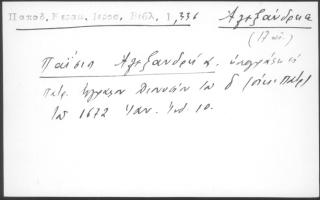 Παπαδ, Κεραμ, Ιεροσ, Βιβλ, 1,336 Αλεξάνδρεια
(17 αι.)
Παΐσιος Αλεξανδρείας. υπογράφει
πατρ. έγγραφον Διονυσίου του Δ
1672 Ιαν. Ινδ. 10.